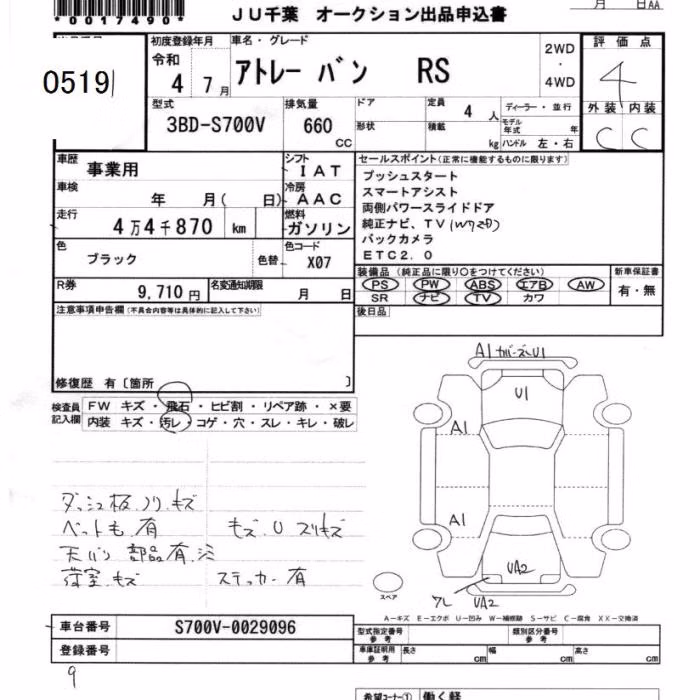 *0017490*
JU千葉 オークション出品申込書
月 日AA
0519
初度登録年月
令和
4 7月
車名・グレード
アトレー バン RS
2WD
・
4WD
評価点
4
外装 内装
C C
型式
3BD-S700V
排気量
660
CC
ドア
形状
定員 4 人
積載 kg
ディーラー・並行
モデル年式 年
ハンドル 左・右
車歴 事業用
シフト IAT
車検 年 月( 日)
冷房 AAC
走行 4万4千870 km
燃料 ガソリン
色 ブラック 色替
色コード X07
R券 9,710円
名変通知期限 月 日
セールスポイント(正常に機能するものに限ります)
プッシュスタート
スマートアシスト
両側パワースライドドア
純正ナビ、TV
バックカメラ
ETC2.0
装備品(純正品に限り○をつけてください)
PS PW ABS エアB AW
SR ナビ TV カワ
新車保証書
有・無
後日品
注意事項申告欄(不具合内容等は具体的に記入して下さい)
修復歴 有〔箇所 〕
検査員
記入欄
FW キズ・飛石・ヒビ割・リペア跡・×要
内装 キズ・汚レ・コゲ・穴・スレ・キレ・破レ
ダッシュ板ノリ.キズ
ペット毛有 キズ.U スリキズ
天バリ 部品有.シミ
荷室.キズ ステッカー有
A1 カバーズレU1
U1
A1
A1
UA2
ワレ UA2
スペア
A−キズ E−エクボ U−凹み W−補修跡 S−サビ C−腐食 XX−交換済
車台番号 S700V-0029096
登録番号
型式指定番号
参考
類別区分番号
参考
車庫証明用
参考
長さ cm 幅 cm 高さ cm
9
希望コーナー① 働く軽